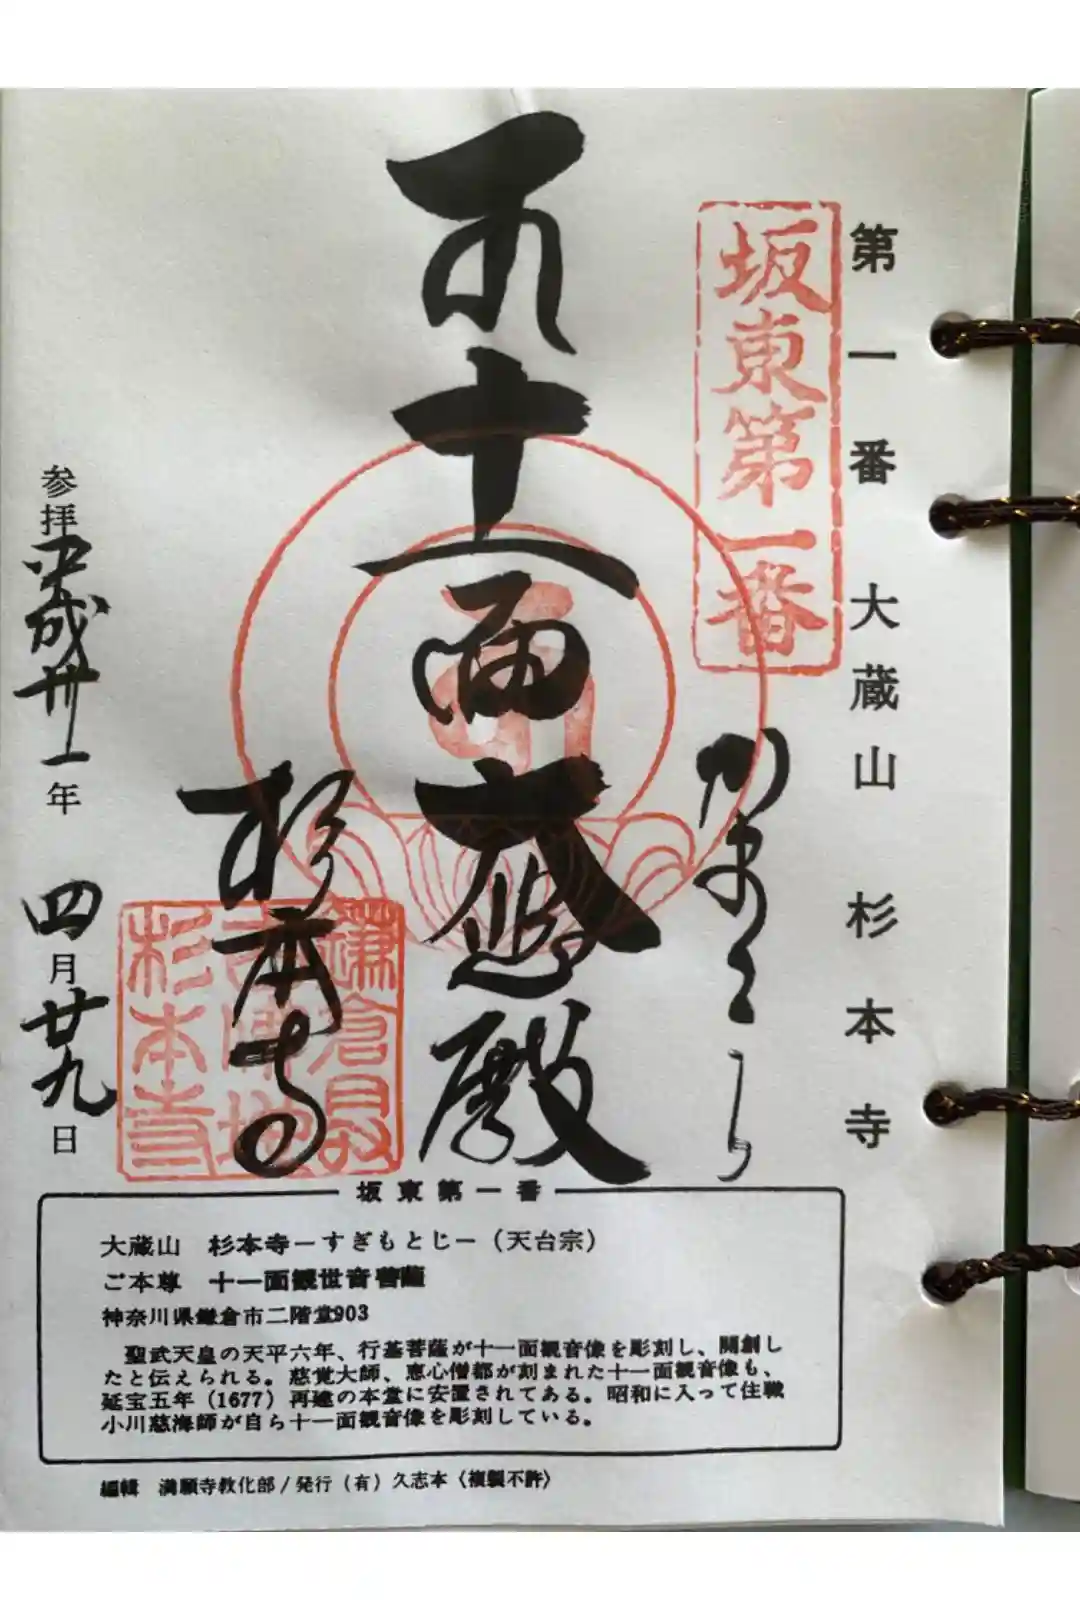 第一番 大蔵山 杉本寺
坂東第一番
かまくら
十一面大悲殿
杉本寺
鎌倉最
古佛地
杉本寺
参拝平成卅一年 四月廿九日
坂東第一番
大蔵山 杉本寺ーすぎもとじー（天台宗）
ご本尊 十一面観世音菩薩
神奈川県鎌倉市二階堂903
聖武天皇の天平六年、行基菩薩が十一面観音像を彫刻し、開創し
たと伝えられる。慈覚大師、恵心僧都が刻まれた十一面観音像も、
延宝五年（1677）再建の本堂に安置されてある。昭和に入って住職
小川慈海師が自ら十一面観音像を彫刻している。
編輯 満願寺教化部/発行（有）久志本〈複製不許〉